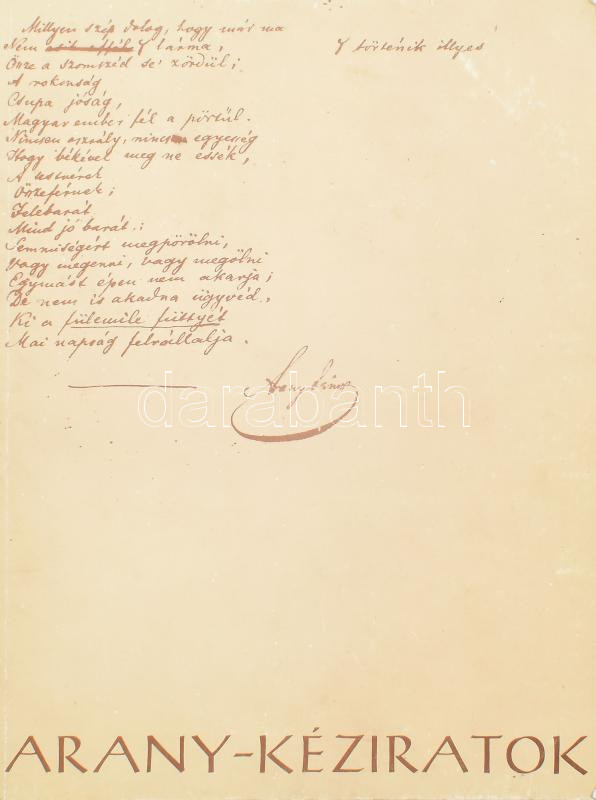 Millyen szép dolog, hogy már ma
Nem esik efféle ɣ lárma, ɣ történik illyes
Össze a szomszéd se' zördül;
A rokonság
Csupa jóság,
Magyar ember fél a pörtül.
Nincsen osztály, nincsen egyesség
Hogy békével meg ne essék,
A testvérek
Összeférnek;
Felebarát
Mind jó barát:
Semmiségért megpörölni,
Vagy megenni, vagy megölni
Egymást épen nem akarja;
De nem is akadna ügyvéd,
Ki a fülemile füttyét
Mai napság felvállalja.
Arany János
darabanth
ARANY-KÉZIRATOK